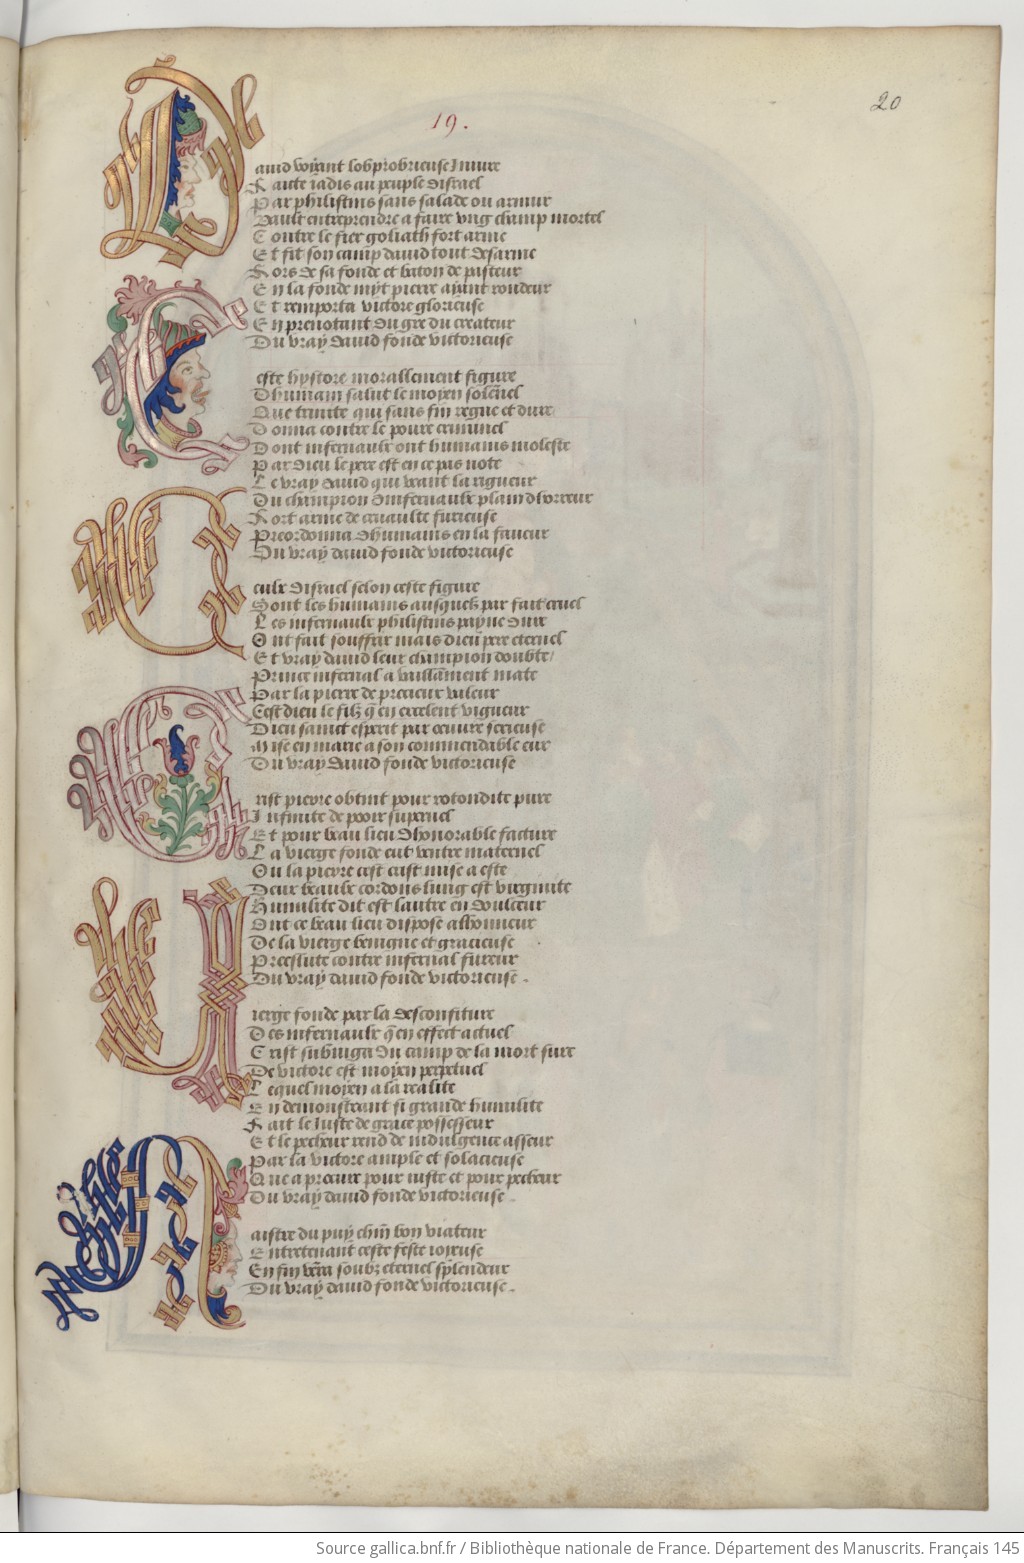 19.
20
Dauid voyant lobprobrieuse Iniure
Faicte iadis au peuple disrael
Par philistins sans salade ou armure
Vault entreprendre a faire vng champ mortel
Contre le fier goliath fort arme
Et fit son camp dauid tout desarme
Fors de sa fonde et baton de pasteur
En la fonde myt pierre ayant rondeur
Et remporta victore glorieuse
En prenotant du gre du createur
Du vray dauid fonde victorieuse
Ceste hystore morallement figure
Dhumain salut le moyen solennel
Que trinite qui sans fin regne et dure
Donna contre le poure criminel
Dont infernaulx ont humains moleste
Par dieu le pere est en ce pas note
Le vray dauid qui veant la rigueur
Du champion dinfernaulx plain dhorreur
Fort arme de cruaulte furieuse
Preordonna dhumains en la faueur
Du vray dauid fonde victorieuse
Ceulx disrael selon ceste figure
Sont les humains ausquelz par fait cruel
Les infernaulx philistins payne dure
Ont fait souffrir mais dieu pere eternel
Et vray dauid leur champion doubte
Prince infernal a vaillāment mate
Par la pierre de precieux valeur
Cest dieu le filz q̄ en excelent vigueur
Dieu sainct esperit par oeuure serieuse
Mise en marie a son commendable eur
Du vray dauid fonde victorieuse
Crist pierre obtint pour rotondite pure
Infinite de pooir supernel
Et pour beau lieu dhonorable facture
La vierge fonde eut ventre maternel
Ou la pierre cest crist mise a este
Deux beaulx cordons lung est virginite
Humilite dit est lautre en doulceur
Ont ce beau lieu dispose a lhonneur
De la vierge benigne et gracieuse
Preeslute contre infernal fureur
Du vray dauid fonde victorieuse.
Vierge fonde par la desconfiture
Des infernaulx q̄ en effect actuel
Crist subiuga du camp de la mort sure
De victore est moyen perpetuel
Lequel moyen a la realite
En demonstrant si grande humilite
Fait le Iuste de grace possesseur
Et le pecheur rend de indulgence asseur
Par la victore ample et solacieuse
Que a procure pour iuste et pour pecheur
Du vray dauid fonde victorieuse.
Maistre du puy chm̄ bon viateur
Entretenant ceste feste ioyeuse
En fin verra soubz eternel splendeur
Du vray dauid fonde victorieuse.
Source gallica.bnf.fr / Bibliothèque nationale de France. Département des Manuscrits. Français 145